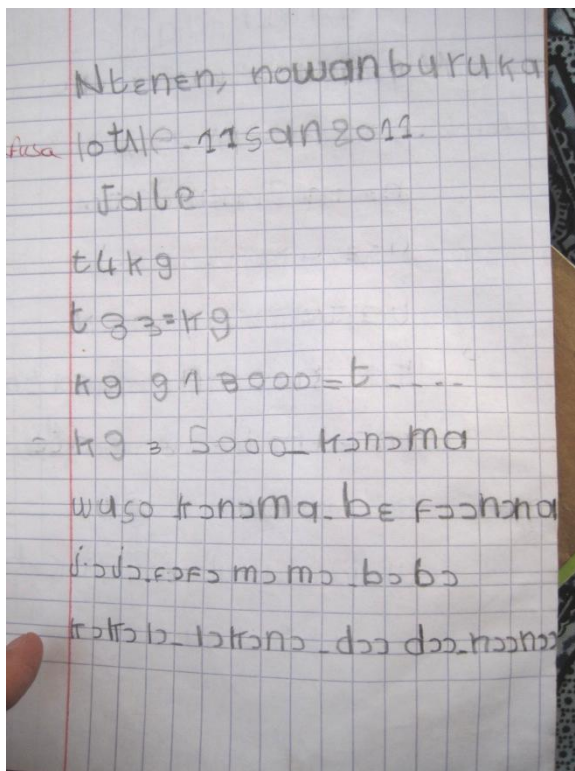 Ntɛnɛn, nowanburuka
fusa lotile 11 san 2011.
Jate
t4kg
t 33=kg
kg 918000=t ----
kg 35000_kɔnɔma
wuso kɔnɔma_bɛ fɔɔnɔna
jɔjɔ_fɔfɔ mɔmɔ_bɔbɔ
kɔkɔlɔ_lɔkɔnɔ_dɔɔ